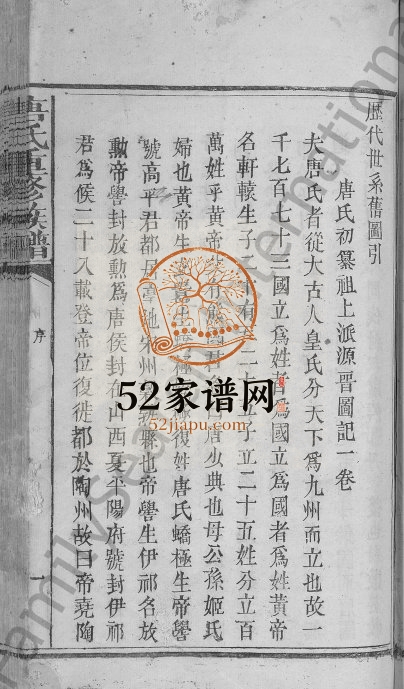 歷代世系舊圖引
唐氏初纂祖上派源晋圖記一卷
夫唐氏者從大古人皇氏分天下爲九州而立也故一
千七百七十三國立爲姓者爲國立爲國者爲姓黄帝
名軒轅生子二十五子立二十五姓分立百
萬姓乎黄帝唐少典也母公孫姬氏
婦也黄帝生極復姓唐氏蟜極生帝嚳
號高平君都宋州縣也帝嚳生伊祁名放
勲帝嚳封放勲爲唐侯封在山西夏平陽府號封伊祁
君爲侯二十入載登帝位復徙都於陶州故曰帝堯陶
唐氏重修族譜
序
一
52家谱网
52jiapu.com
FamilySearch International